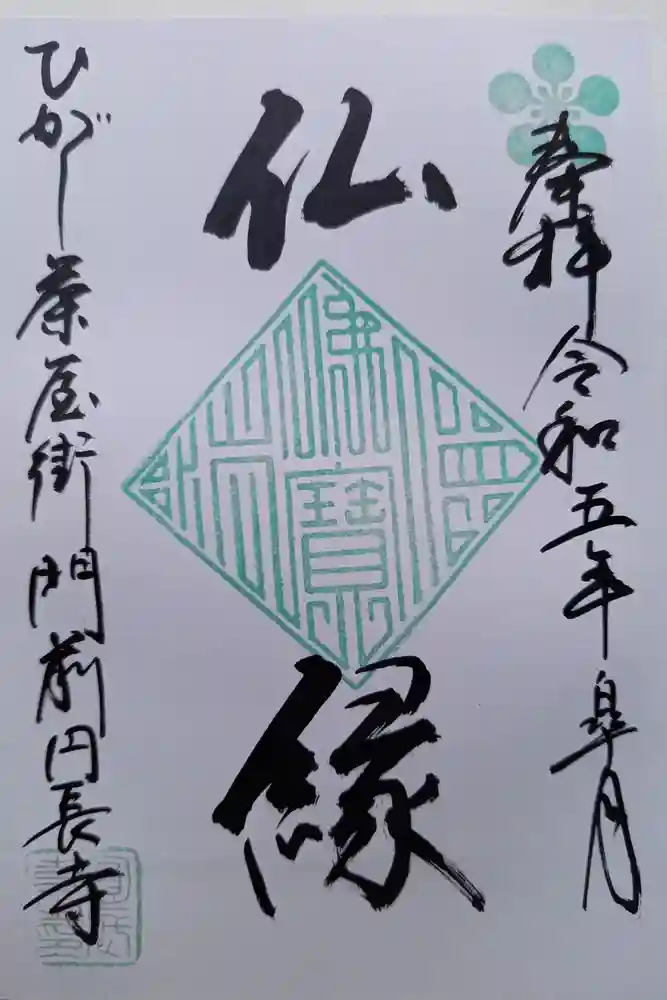 奉拝 令和五年 皐月
仏
佛
寶
縁
ひがし茶屋街 門前 円長寺